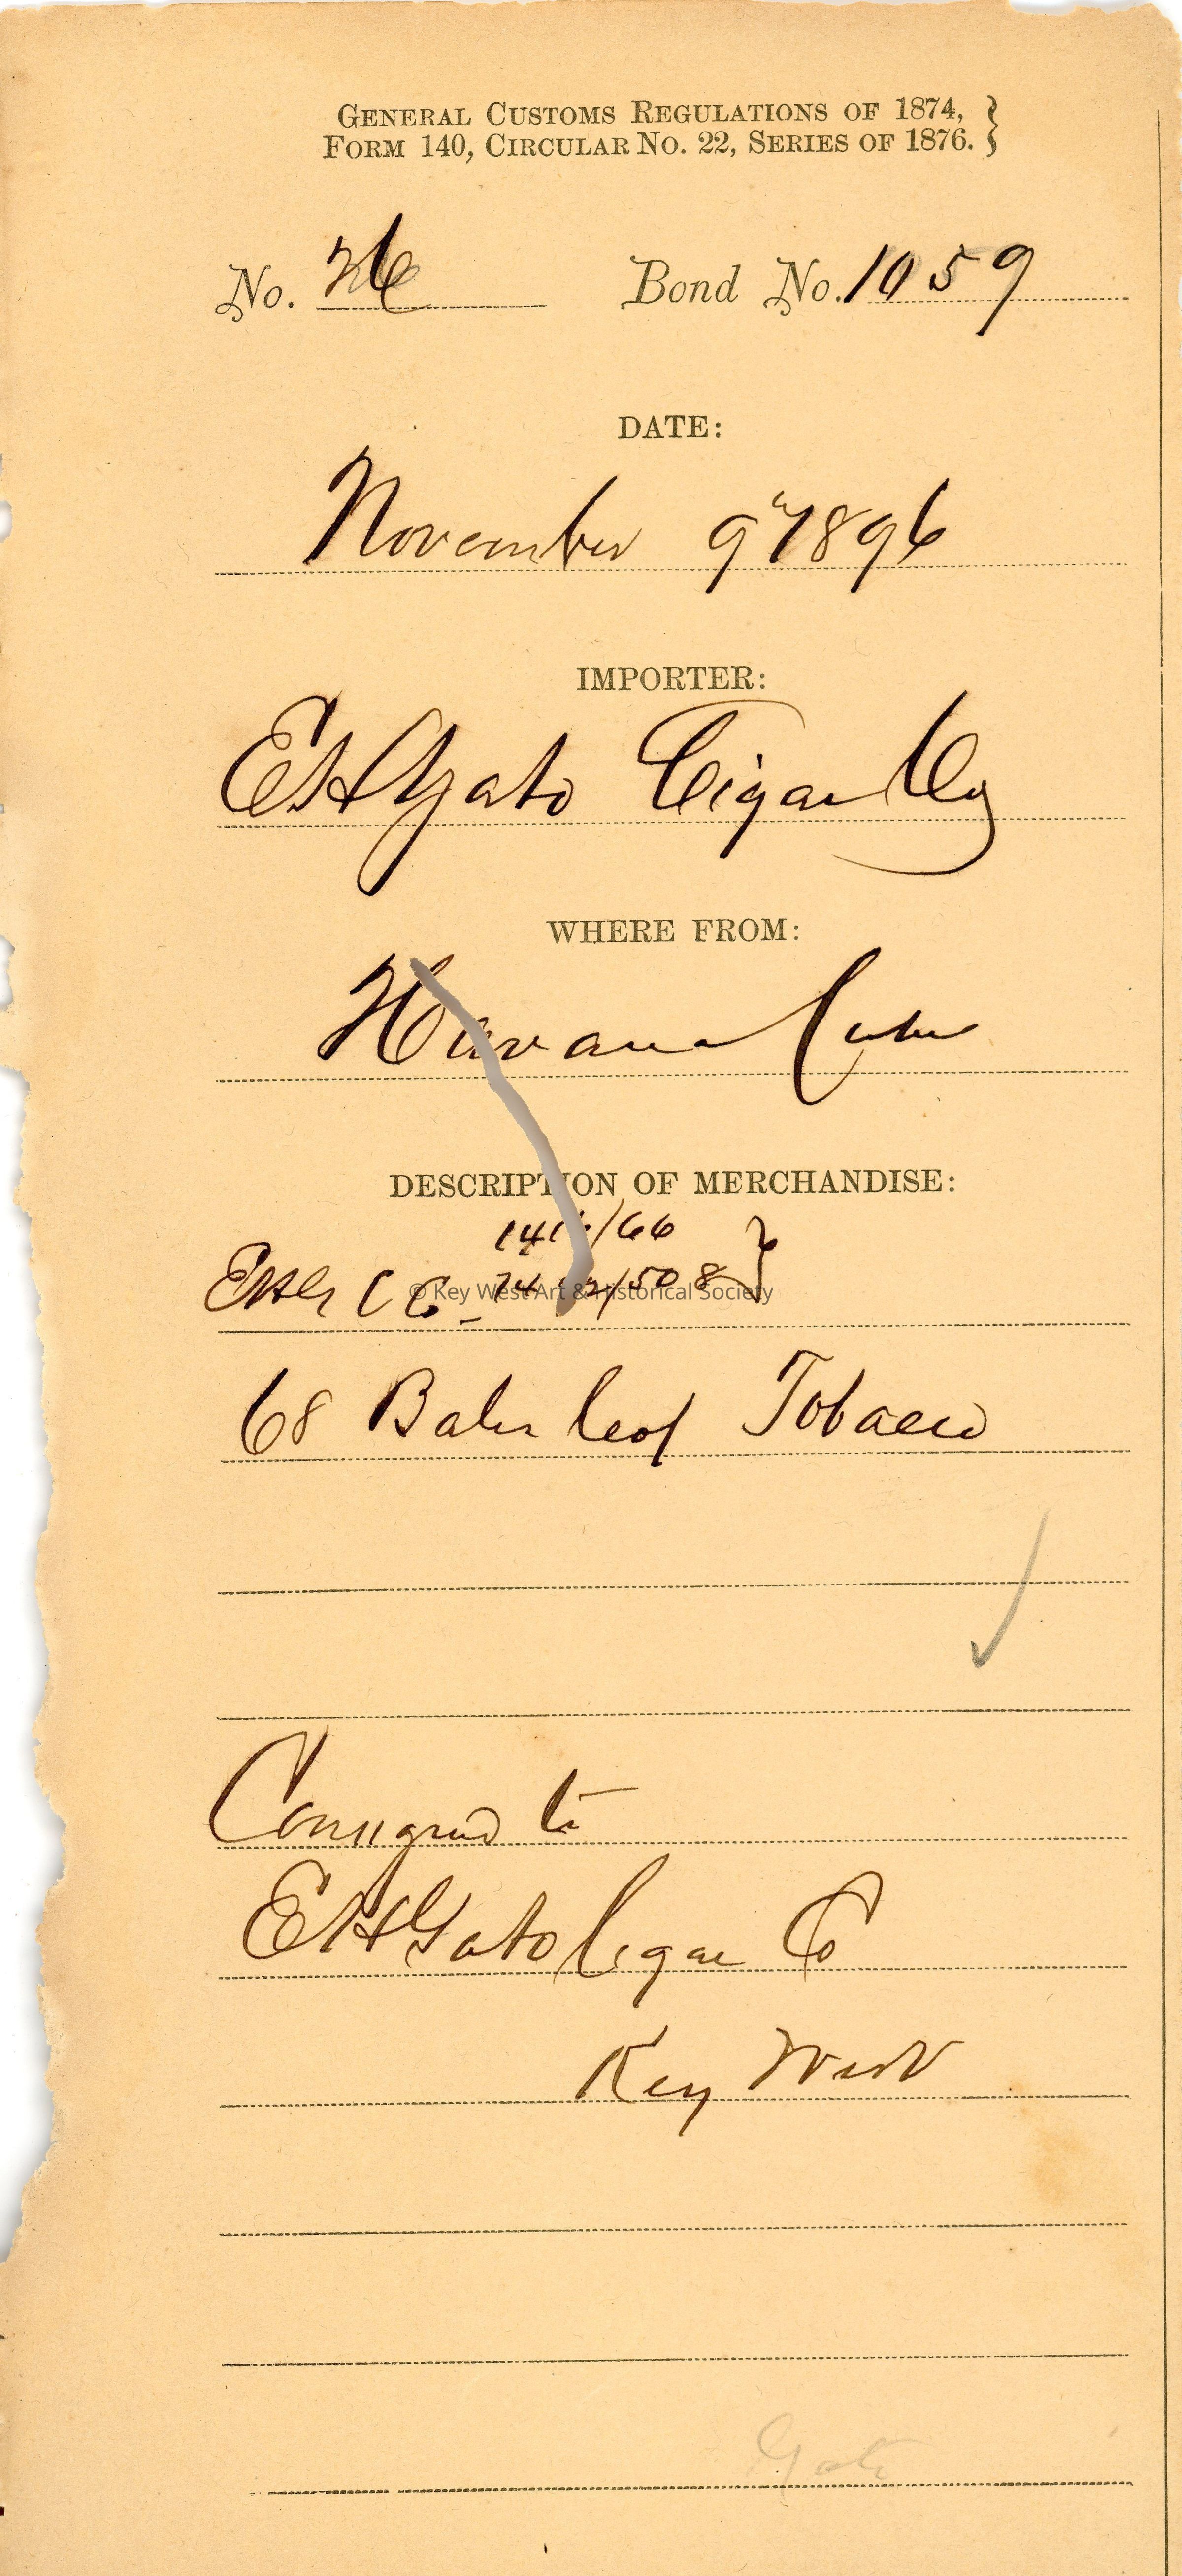 GENERAL CUSTOMS REGULATIONS OF 1874,
FORM 140, CIRCULAR NO. 22, SERIES OF 1876.
No. 26 Bond No. 1059
DATE:
November 9th 1896
IMPORTER:
EHGato Cigar Co
WHERE FROM:
Havana Cuba
DESCRIPTION OF MERCHANDISE:
/66
EHG C Co -
© Key West Art & Historical Society
68 Bales leaf Tobacco
Consigned to
EHGato Cigar Co
Key West
Gato